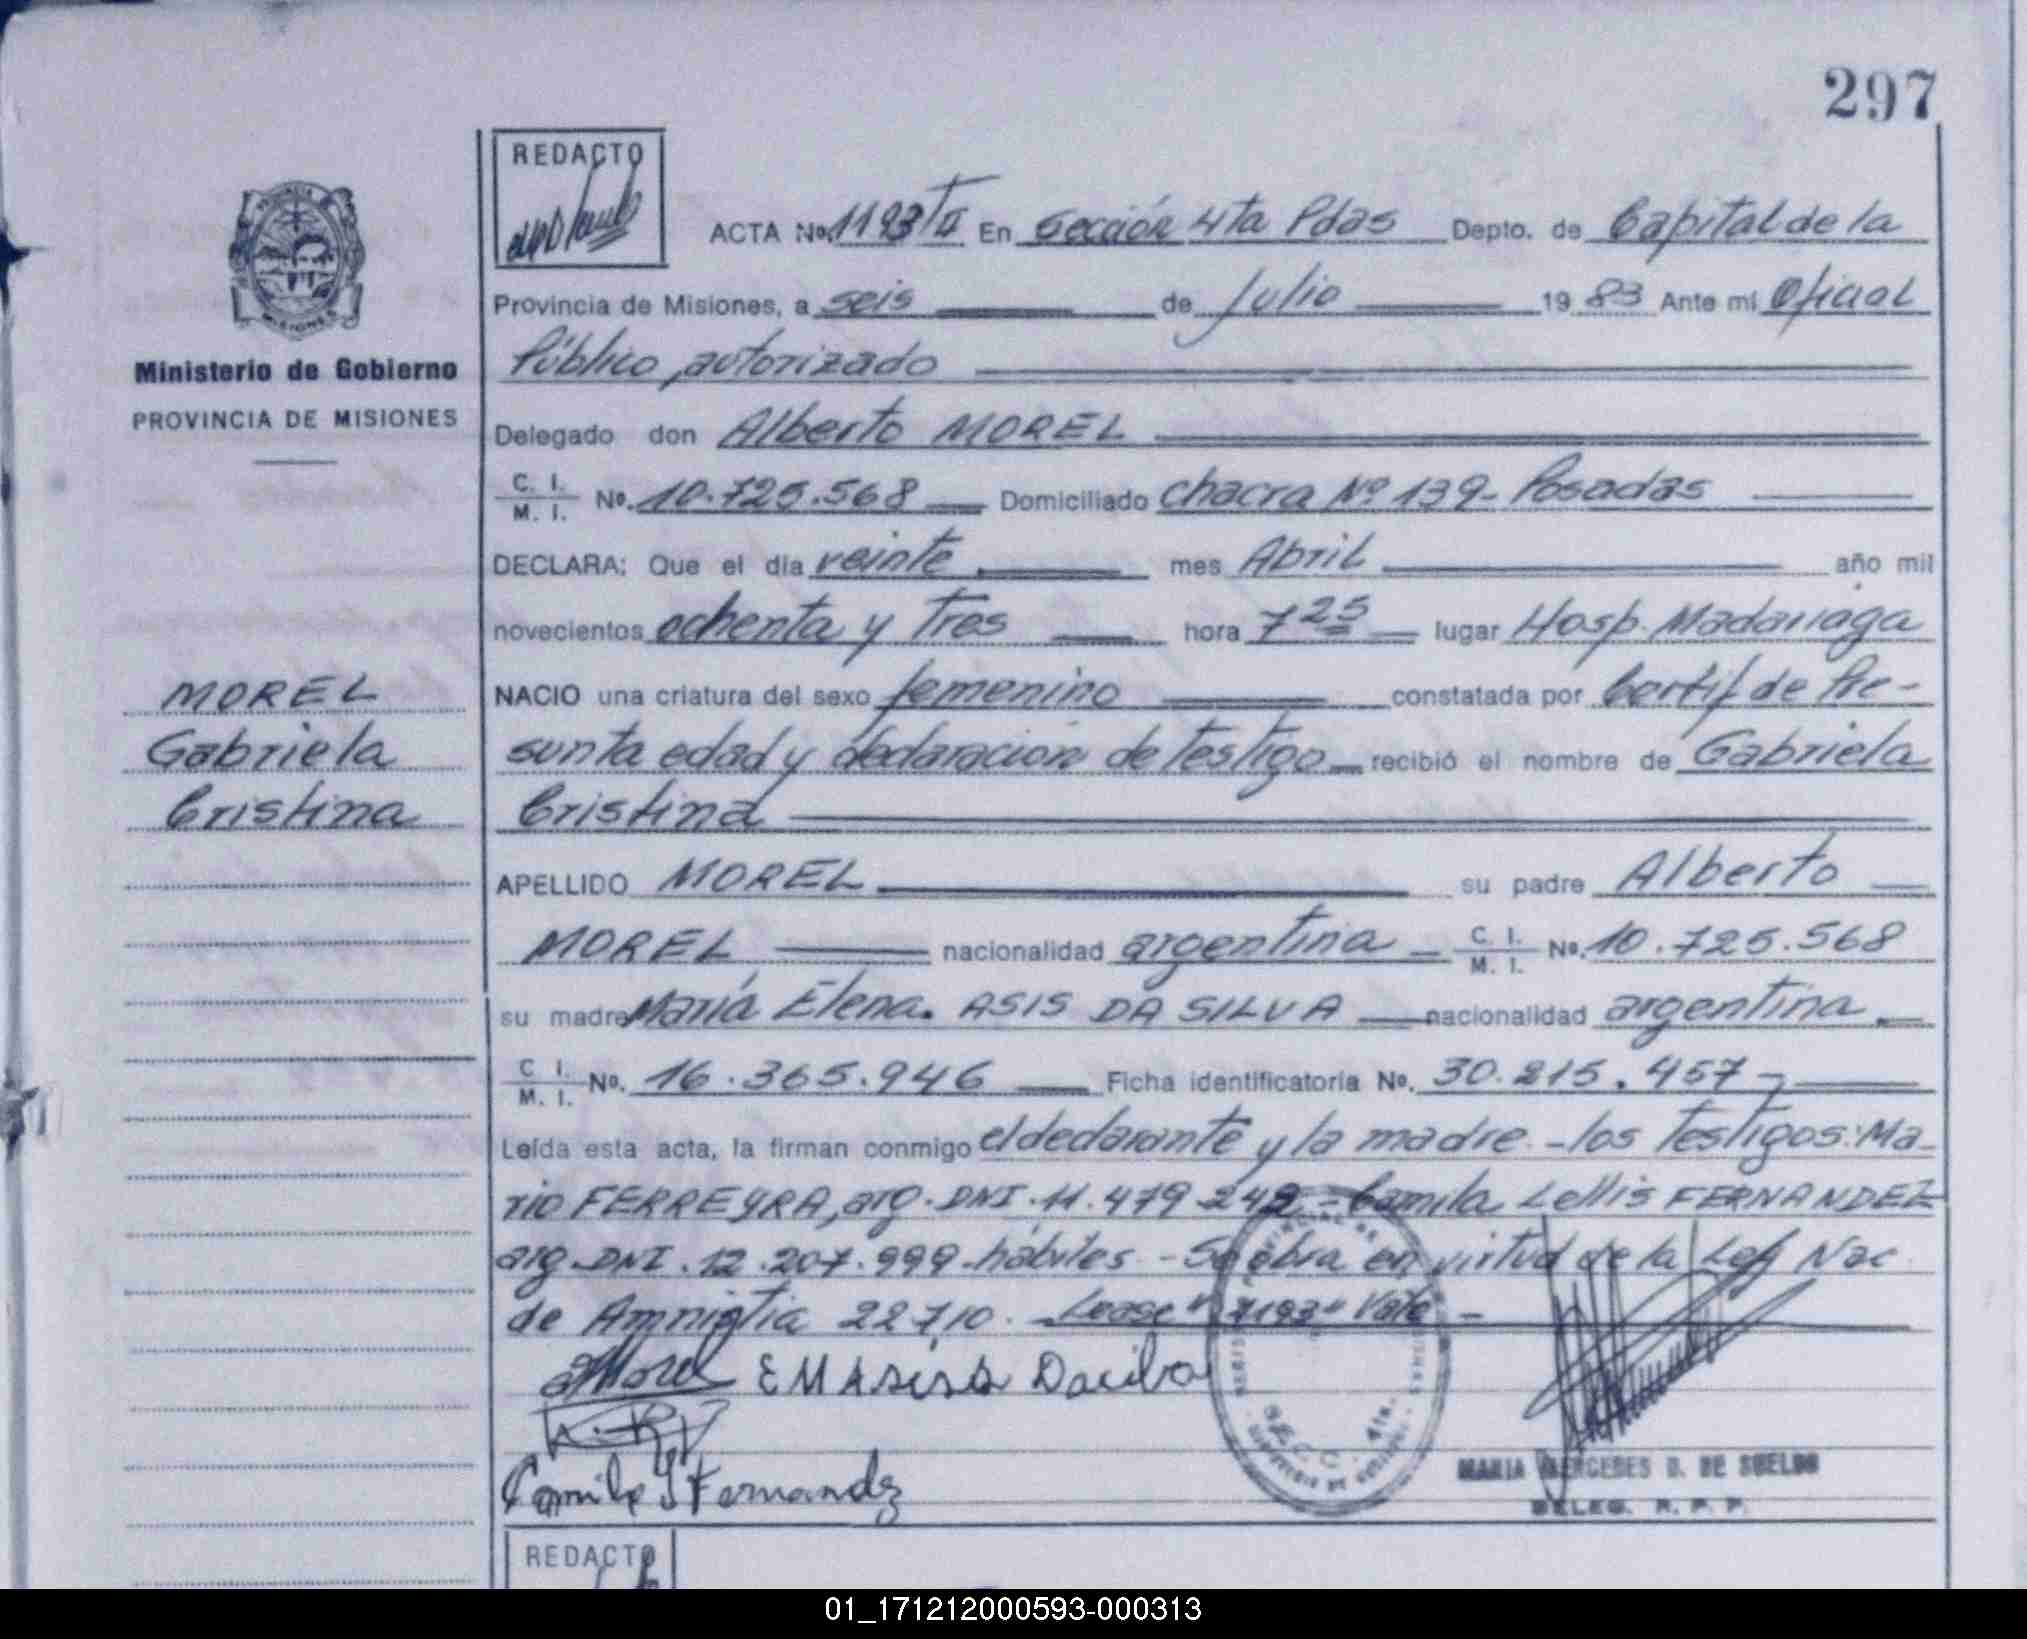 297
REDACTO
ACTA Nº. 1193/T II En Sección 4ta Pdas Depto. de Capital de la
Provincia de Misiones, a seis de Julio 1983 Ante mí Oficial
Público autorizado
Ministerio de Gobierno
PROVINCIA DE MISIONES
Delegado don Alberto MOREL
C. I.
M. I. Nº. 10.725.568 Domiciliado chacra Nº 139- Posadas
DECLARA: Que el día veinte mes Abril año mil
novecientos ochenta y Tres hora 7 25 lugar Hosp. Madariaga
MOREL
Gabriela
Cristina
NACIO una criatura del sexo femenino constatada por Certif de Pre-
sunta edad y declaracion de Testigo recibió el nombre de Gabriela
Cristina
APELLIDO MOREL su padre Alberto
MOREL nacionalidad argentina C. I.
M. I. Nº. 10.725.568
su madre María Elena. ASIS DA SILVA nacionalidad argentina
C I.
M. I. Nº. 16.365.946 Ficha identificatoria Nº. 30.215.457-
Leída esta acta, la firman conmigo el declarante y la madre.-los Testigos: Ma-
rio FERREYRA, arg. DNI.11.479 242 - Camila Lellis FERNANDEZ
arg. DNI.12.207.999-hábiles.- Se labra en virtud de la Ley Nac.
de Amnistia 22710. Lease "1193" Vale -
Morel EM Asisa Dacilva
Camila Fernandez
SECC. 4ta.
MARIA MERCEDES D. DE SUELDO
DELEG. R. P. P.
REDACTO
01_171212000593-000313